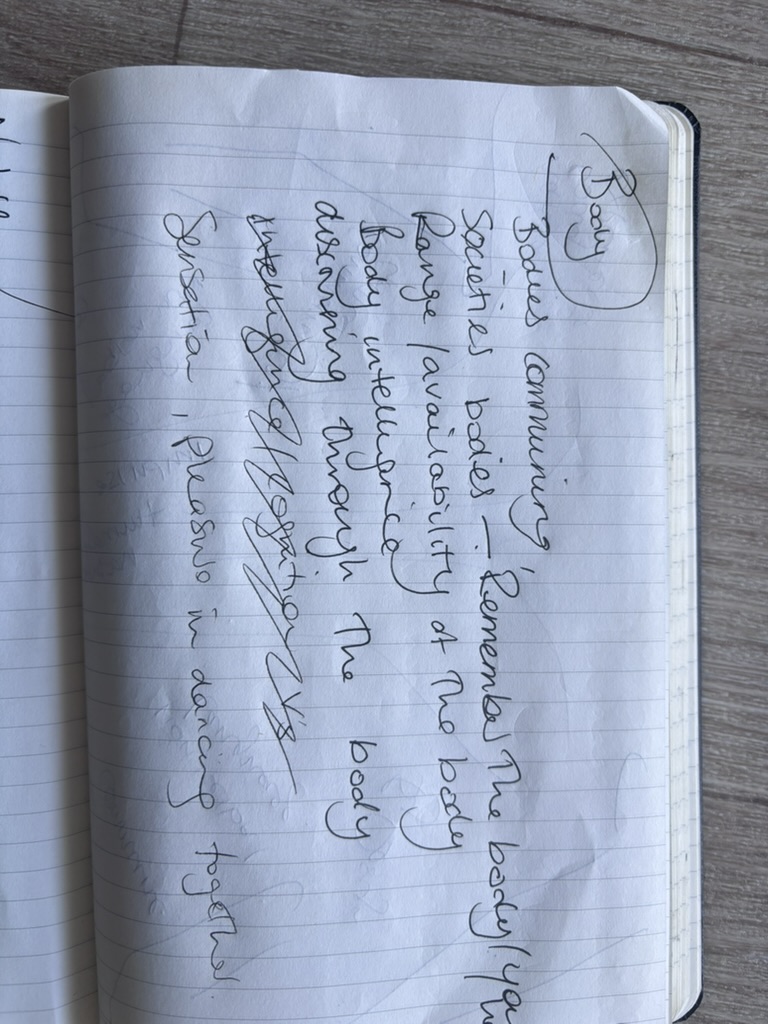 Body
Bodies communing,
Societies bodies — Remember The body/
Range / availability of The body
Body intelligence
discerning through The body
Intelligence/
Sensation, Pleasure in dancing together.